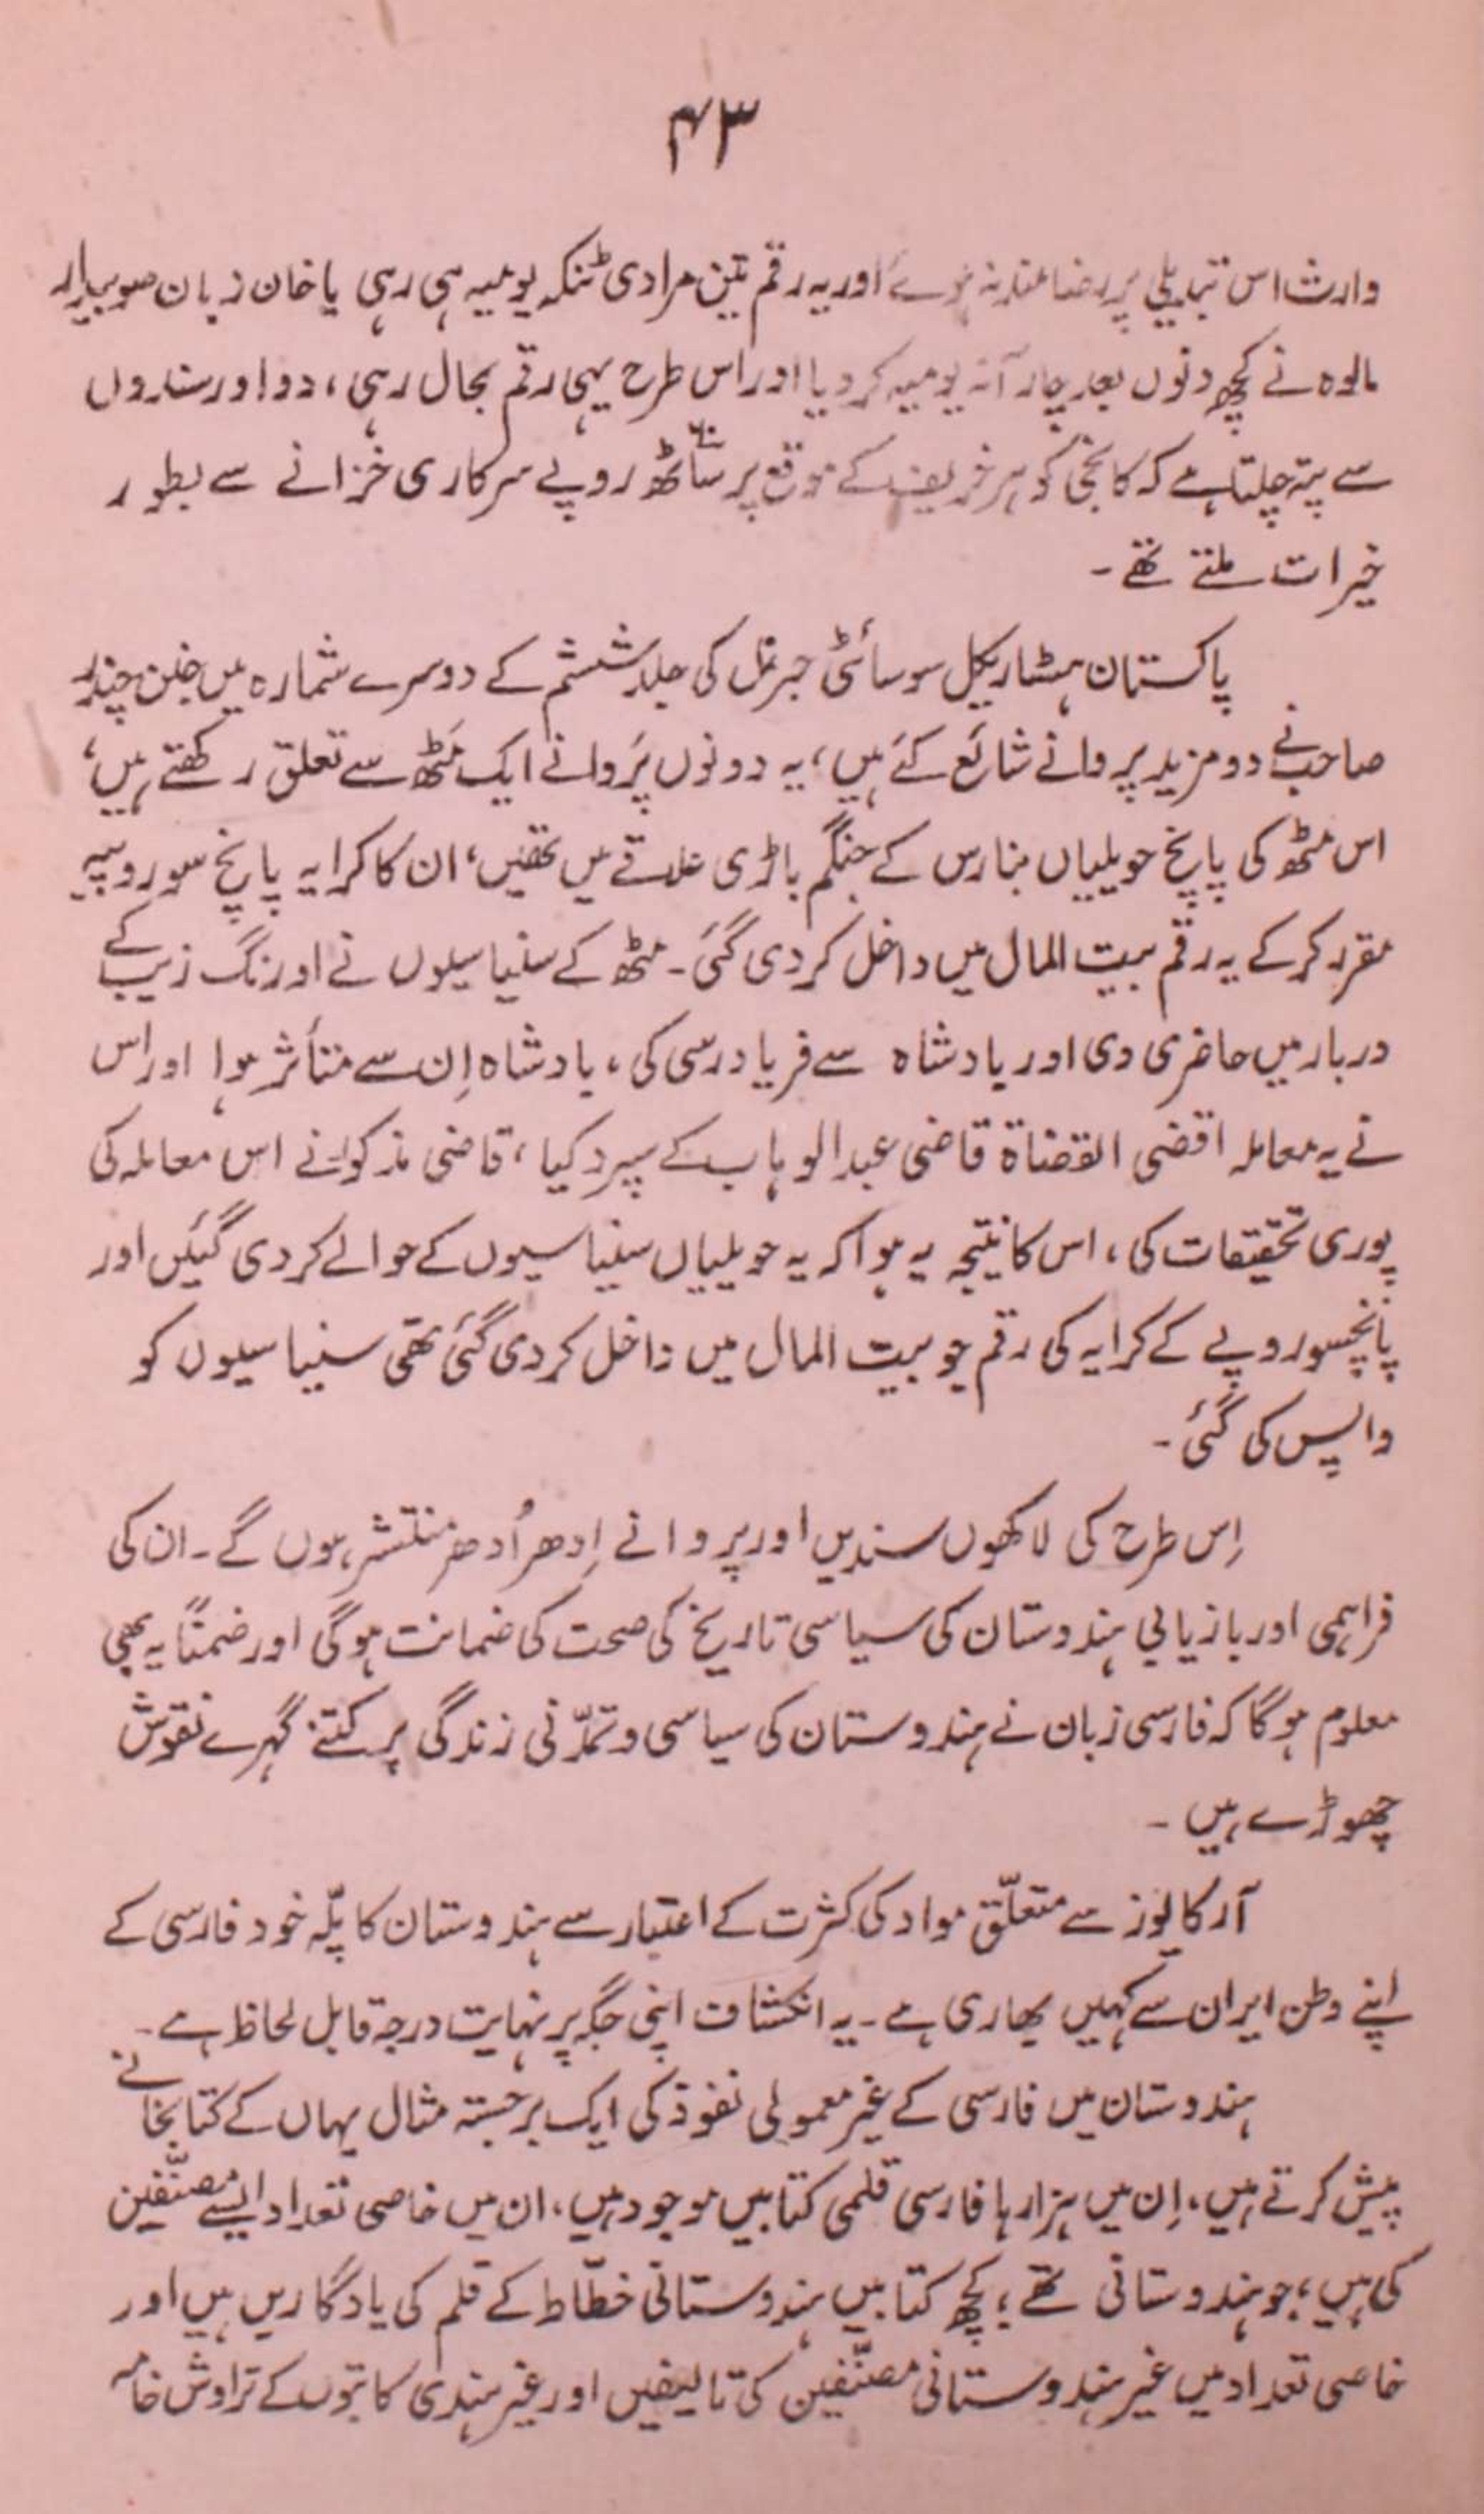 ۴۳
وارث اس تبدیلی پر رضامند نہ ہوئے اور یہ رقم تین مرادی ٹنکہ یومیہ ہی رہی یا خان زبان صوبیدار
مالوہ نے کچھ دنوں بعد چار آنہ یومیہ کر دیا اور اس طرح یہی رقم بحال رہی، دو اور سندوں
سے پتہ چلتا ہے کہ کانجی کو ہر خریف کے موقع پر ساٹھ روپے سرکاری خزانے سے بطور
خیرات ملتے تھے۔
پاکستان ہسٹاریکل سوسائٹی جرنل کی جلد ششم کے دوسرے شمارہ میں جنن چندر
صاحب نے دو مزید پروانے شائع کئے ہیں، یہ دونوں پَروانے ایک مَٹھ سے تعلق رکھتے ہیں،
اس مٹھ کی پانچ حویلیاں بنارس کے جنگم باڑی علاقے میں تھیں، ان کا کرایہ پانچ سو روپیہ
مقرر کر کے یہ رقم بیت المال میں داخل کر دی گئی۔ مٹھ کے سنیاسیوں نے اورنگ زیب کے
دربار میں حاضری دی اور بادشاہ سے فریاد رسی کی، بادشاہ اِن سے متأثر ہوا اور اس
نے یہ معاملہ اقضی القضاۃ قاضی عبدالوہاب کے سپرد کیا، قاضی مذکور نے اس معاملہ کی
پوری تحقیقات کی، اس کا نتیجہ یہ ہوا کہ یہ حویلیاں سنیاسیوں کے حوالے کر دی گئیں اور
پانچسو روپے کے کرایہ کی رقم جو بیت المال میں داخل کر دی گئی تھی سنیاسیوں کو
واپس کی گئی۔
اِس طرح کی لاکھوں سندیں اور پروانے اِدھر اُدھر منتشر ہوں گے۔ ان کی
فراہمی اور بازیابی ہندوستان کی سیاسی تاریخ کی صحت کی ضمانت ہوگی اور ضمناً یہ بھی
معلوم ہوگا کہ فارسی زبان نے ہندوستان کی سیاسی و تمدّنی زندگی پر کتنے گہرے نقوش
چھوڑے ہیں۔
آرکایوز سے متعلّق مواد کی کثرت کے اعتبار سے ہندوستان کا پلّہ خود فارسی کے
اپنے وطن ایران سے کہیں بھاری ہے۔ یہ انکشاف اپنی جگہ پر نہایت درجہ قابل لحاظ ہے۔
ہندوستان میں فارسی کے غیر معمولی نفوذ کی ایک برجستہ مثال یہاں کے کتابخانے
پیش کرتے ہیں، اِن میں ہزارہا فارسی قلمی کتابیں موجود ہیں، ان میں خاصی تعداد ایسے مصنّفین
کی ہیں، جو ہندوستانی تھے؛ کچھ کتابیں ہندوستانی خطّاط کے قلم کی یادگاریں ہیں اور
خاصی تعداد میں غیر ہندوستانی مصنّفین کی تالیفیں اور غیر ہندی کاتبوں کے تراوش خامہ